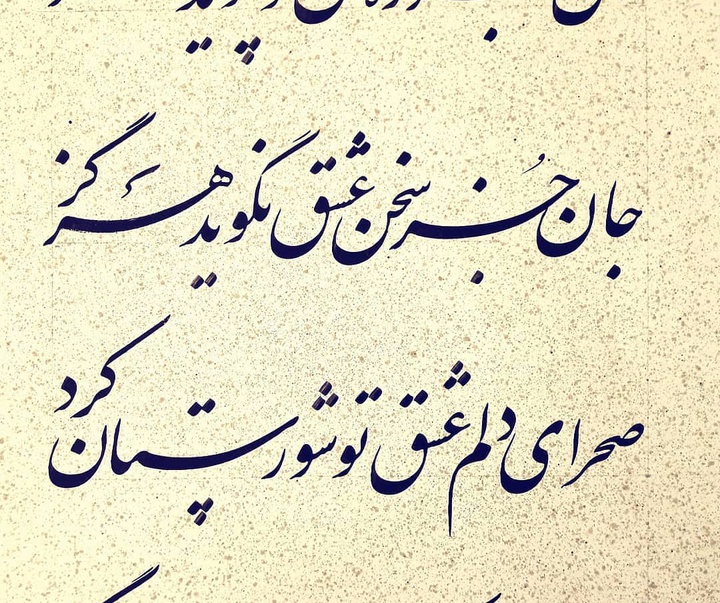 جان جُز سخن عشق نگوید هرگز
صحرای دلم عشق تو شورستان کرد